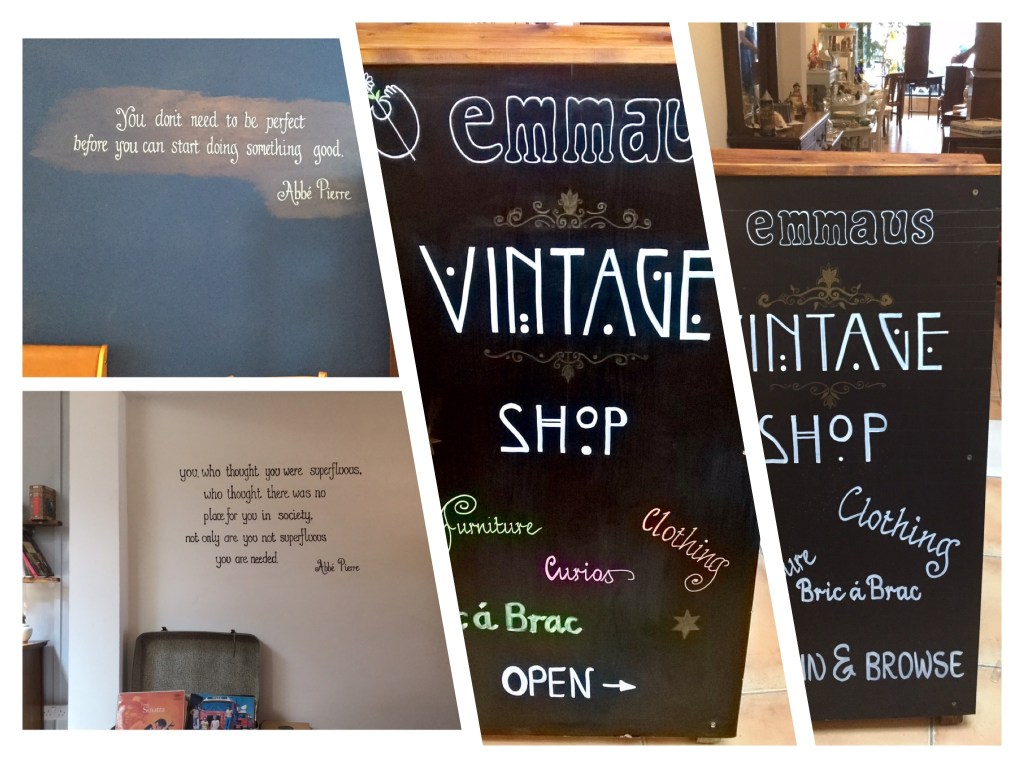 You don't need to be perfect
before you can start doing something good.
Abbé Pierre
you, who thought you were superfluous,
who thought there was no
place for you in society,
not only are you not superfluous
you are needed.
Abbé Pierre
Sinatra
emmaus
VINTAGE
SHOP
Furniture
Clothing
Curios
c á Brac
OPEN →
emmaus
INTAGE
SHOP
Clothing
ure
Bric á Brac
IN & BROWSE